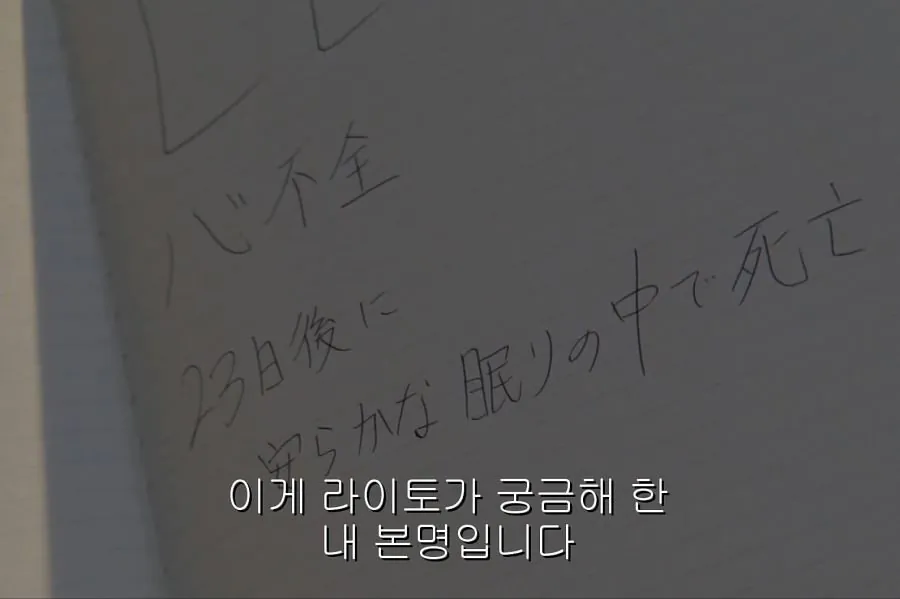 心不全
23日後に
安らかな眠りの中で死亡
이게 라이토가 궁금해 한
내 본명입니다